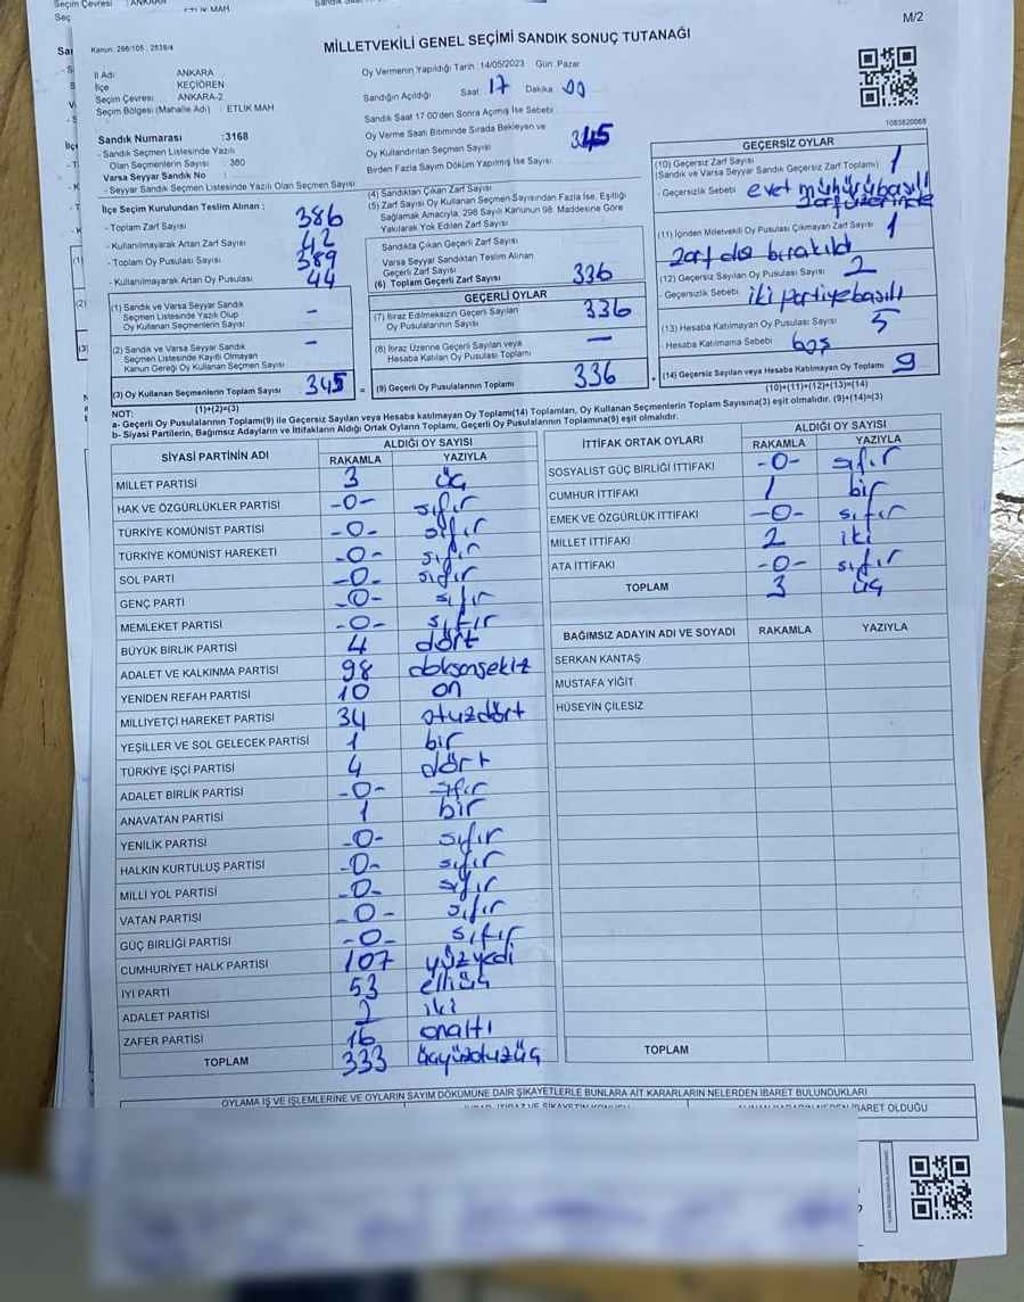 Seçim Çevresi
Seç
ETLİK MAH
M/2
Kanun: 298/105 , 2839/4
MİLLETVEKİLİ GENEL SEÇİMİ SANDIK SONUÇ TUTANAĞI
İl Adı ANKARA
İlçe KEÇİÖREN
Seçim Çevresi ANKARA-2
Seçim Bölgesi (Mahalle Adı) : ETLİK MAH
Sandık Numarası :3168
- Sandık Seçmen Listesinde Yazılı
Olan Seçmenlerin Sayısı : 380
Varsa Seyyar Sandık No :
- Seyyar Sandık Seçmen Listesinde Yazılı Olan Seçmen Sayısı
İlçe Seçim Kurulundan Teslim Alınan :
- Toplam Zarf Sayısı 386
- Kullanılmayarak Artan Zarf Sayısı 42
- Toplam Oy Pusulası Sayısı 389
- Kullanılmayarak Artan Oy Pusulası 44
(1) Sandık ve Varsa Seyyar Sandık
Seçmen Listesinde Yazılı Olup
Oy Kullanan Seçmenlerin Sayısı -
(2) Sandık ve Varsa Seyyar Sandık
Seçmen Listesinde Kayıtlı Olmayan
Kanun Gereği Oy Kullanan Seçmen Sayısı -
(3) Oy Kullanan Seçmenlerin Toplam Sayısı 345
(1)+(2)=(3)
Oy Vermenin Yapıldığı Tarih :14/05/2023 Gün :Pazar
Sandığın Açıldığı Saat 17 Dakika 00
Sandık Saat 17:00'den Sonra Açılmış İse Sebebi
Oy Verme Saati Bitiminde Sırada Bekleyen ve
Oy Kullandırılan Seçmen Sayısı 345
Birden Fazla Sayım Döküm Yapılmış İse Sayısı
(4) Sandıktan Çıkan Zarf Sayısı
(5) Zarf Sayısı Oy Kullanan Seçmen Sayısından Fazla İse, Eşitliği
Sağlamak Amacıyla, 298 Sayılı Kanunun 98. Maddesine Göre
Yakılarak Yok Edilen Zarf Sayısı
Sandıkta Çıkan Geçerli Zarf Sayısı
Varsa Seyyar Sandıktan Teslim Alınan
Geçerli Zarf Sayısı
(6) Toplam Geçerli Zarf Sayısı 336
GEÇERLİ OYLAR
(7) İtiraz Edilmeksizin Geçerli Sayılan
Oy Pusulalarının Sayısı 336
(8) İtiraz Üzerine Geçerli Sayılan veya
Hesaba Katılan Oy Pusulası Toplamı -
= (9) Geçerli Oy Pusulalarının Toplamı 336
1083820068
GEÇERSİZ OYLAR
(10) Geçersiz Zarf Sayısı
(Sandık ve Varsa Seyyar Sandık Geçersiz Zarf Toplamı) 1
- Geçersizlik Sebebi evet mührü basılı
zarf üzerinde
(11) İçinden Milletvekili Oy Pusulası Çıkmayan Zarf Sayısı 1
zarf dışı bırakıldı
(12) Geçersiz Sayılan Oy Pusulası Sayısı 2
- Geçersizlik Sebebi iki partiye basılı
(13) Hesaba Katılmayan Oy Pusulası Sayısı 5
Hesaba Katılmama Sebebi boş
(14) Geçersiz Sayılan veya Hesaba Katılmayan Oy Toplamı 9
(10)+(11)+(12)+(13)=(14)
NOT:
a- Geçerli Oy Pusulalarının Toplamı(9) ile Geçersiz Sayılan veya Hesaba katılmayan Oy Toplamı(14) Toplamları, Oy Kullanan Seçmenlerin Toplam Sayısına(3) eşit olmalıdır. (9)+(14)=(3)
b- Siyasi Partilerin, Bağımsız Adayların ve İttifakların Aldığı Ortak Oyların Toplamı, Geçerli Oy Pusulalarının Toplamına(9) eşit olmalıdır.
SİYASİ PARTİNİN ADI ALDIĞI OY SAYISI
RAKAMLA YAZIYLA
MİLLET PARTİSİ 3 üç
HAK VE ÖZGÜRLÜKLER PARTİSİ -0- sıfır
TÜRKİYE KOMÜNİST PARTİSİ -0- sıfır
TÜRKİYE KOMÜNİST HAREKETİ -0- sıfır
SOL PARTİ -0- sıfır
GENÇ PARTİ -0- sıfır
MEMLEKET PARTİSİ -0- sıfır
BÜYÜK BİRLİK PARTİSİ 4 dört
ADALET VE KALKINMA PARTİSİ 98 doksansekiz
YENİDEN REFAH PARTİSİ 10 on
MİLLİYETÇİ HAREKET PARTİSİ 34 otuzdört
YEŞİLLER VE SOL GELECEK PARTİSİ 1 bir
TÜRKİYE İŞÇİ PARTİSİ 4 dört
ADALET BİRLİK PARTİSİ -0- sıfır
ANAVATAN PARTİSİ 1 bir
YENİLİK PARTİSİ -0- sıfır
HALKIN KURTULUŞ PARTİSİ -0- sıfır
MİLLİ YOL PARTİSİ -0- sıfır
VATAN PARTİSİ -0- sıfır
GÜÇ BİRLİĞİ PARTİSİ -0- sıfır
CUMHURİYET HALK PARTİSİ 107 yüzyedi
İYİ PARTİ 53 elliüç
ADALET PARTİSİ 2 iki
ZAFER PARTİSİ 16 onaltı
TOPLAM 333 üçyüzotuzüç
İTTİFAK ORTAK OYLARI ALDIĞI OY SAYISI
RAKAMLA YAZIYLA
SOSYALİST GÜÇ BİRLİĞİ İTTİFAKI -0- sıfır
CUMHUR İTTİFAKI 1 bir
EMEK VE ÖZGÜRLÜK İTTİFAKI -0- sıfır
MİLLET İTTİFAKI 2 iki
ATA İTTİFAKI -0- sıfır
TOPLAM 3 üç
BAĞIMSIZ ADAYIN ADI VE SOYADI RAKAMLA YAZIYLA
SERKAN KANTAŞ
MUSTAFA YİĞİT
HÜSEYİN ÇİLESİZ
TOPLAM
OYLAMA İŞ VE İŞLEMLERİNE VE OYLARIN SAYIM DÖKÜMÜNE DAİR ŞİKAYETLERLE BUNLARA AİT KARARLARIN NELERDEN İBARET BULUNDUKLARI
İBARET OLDUĞU